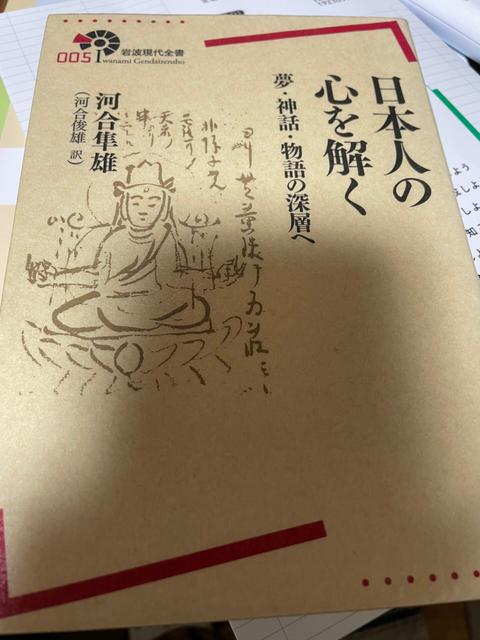 005
岩波現代全書
Iwanami Gendaizensho
日本人の
心を解く
夢・神話・物語の深層へ
河合隼雄
(河合俊雄 訳)